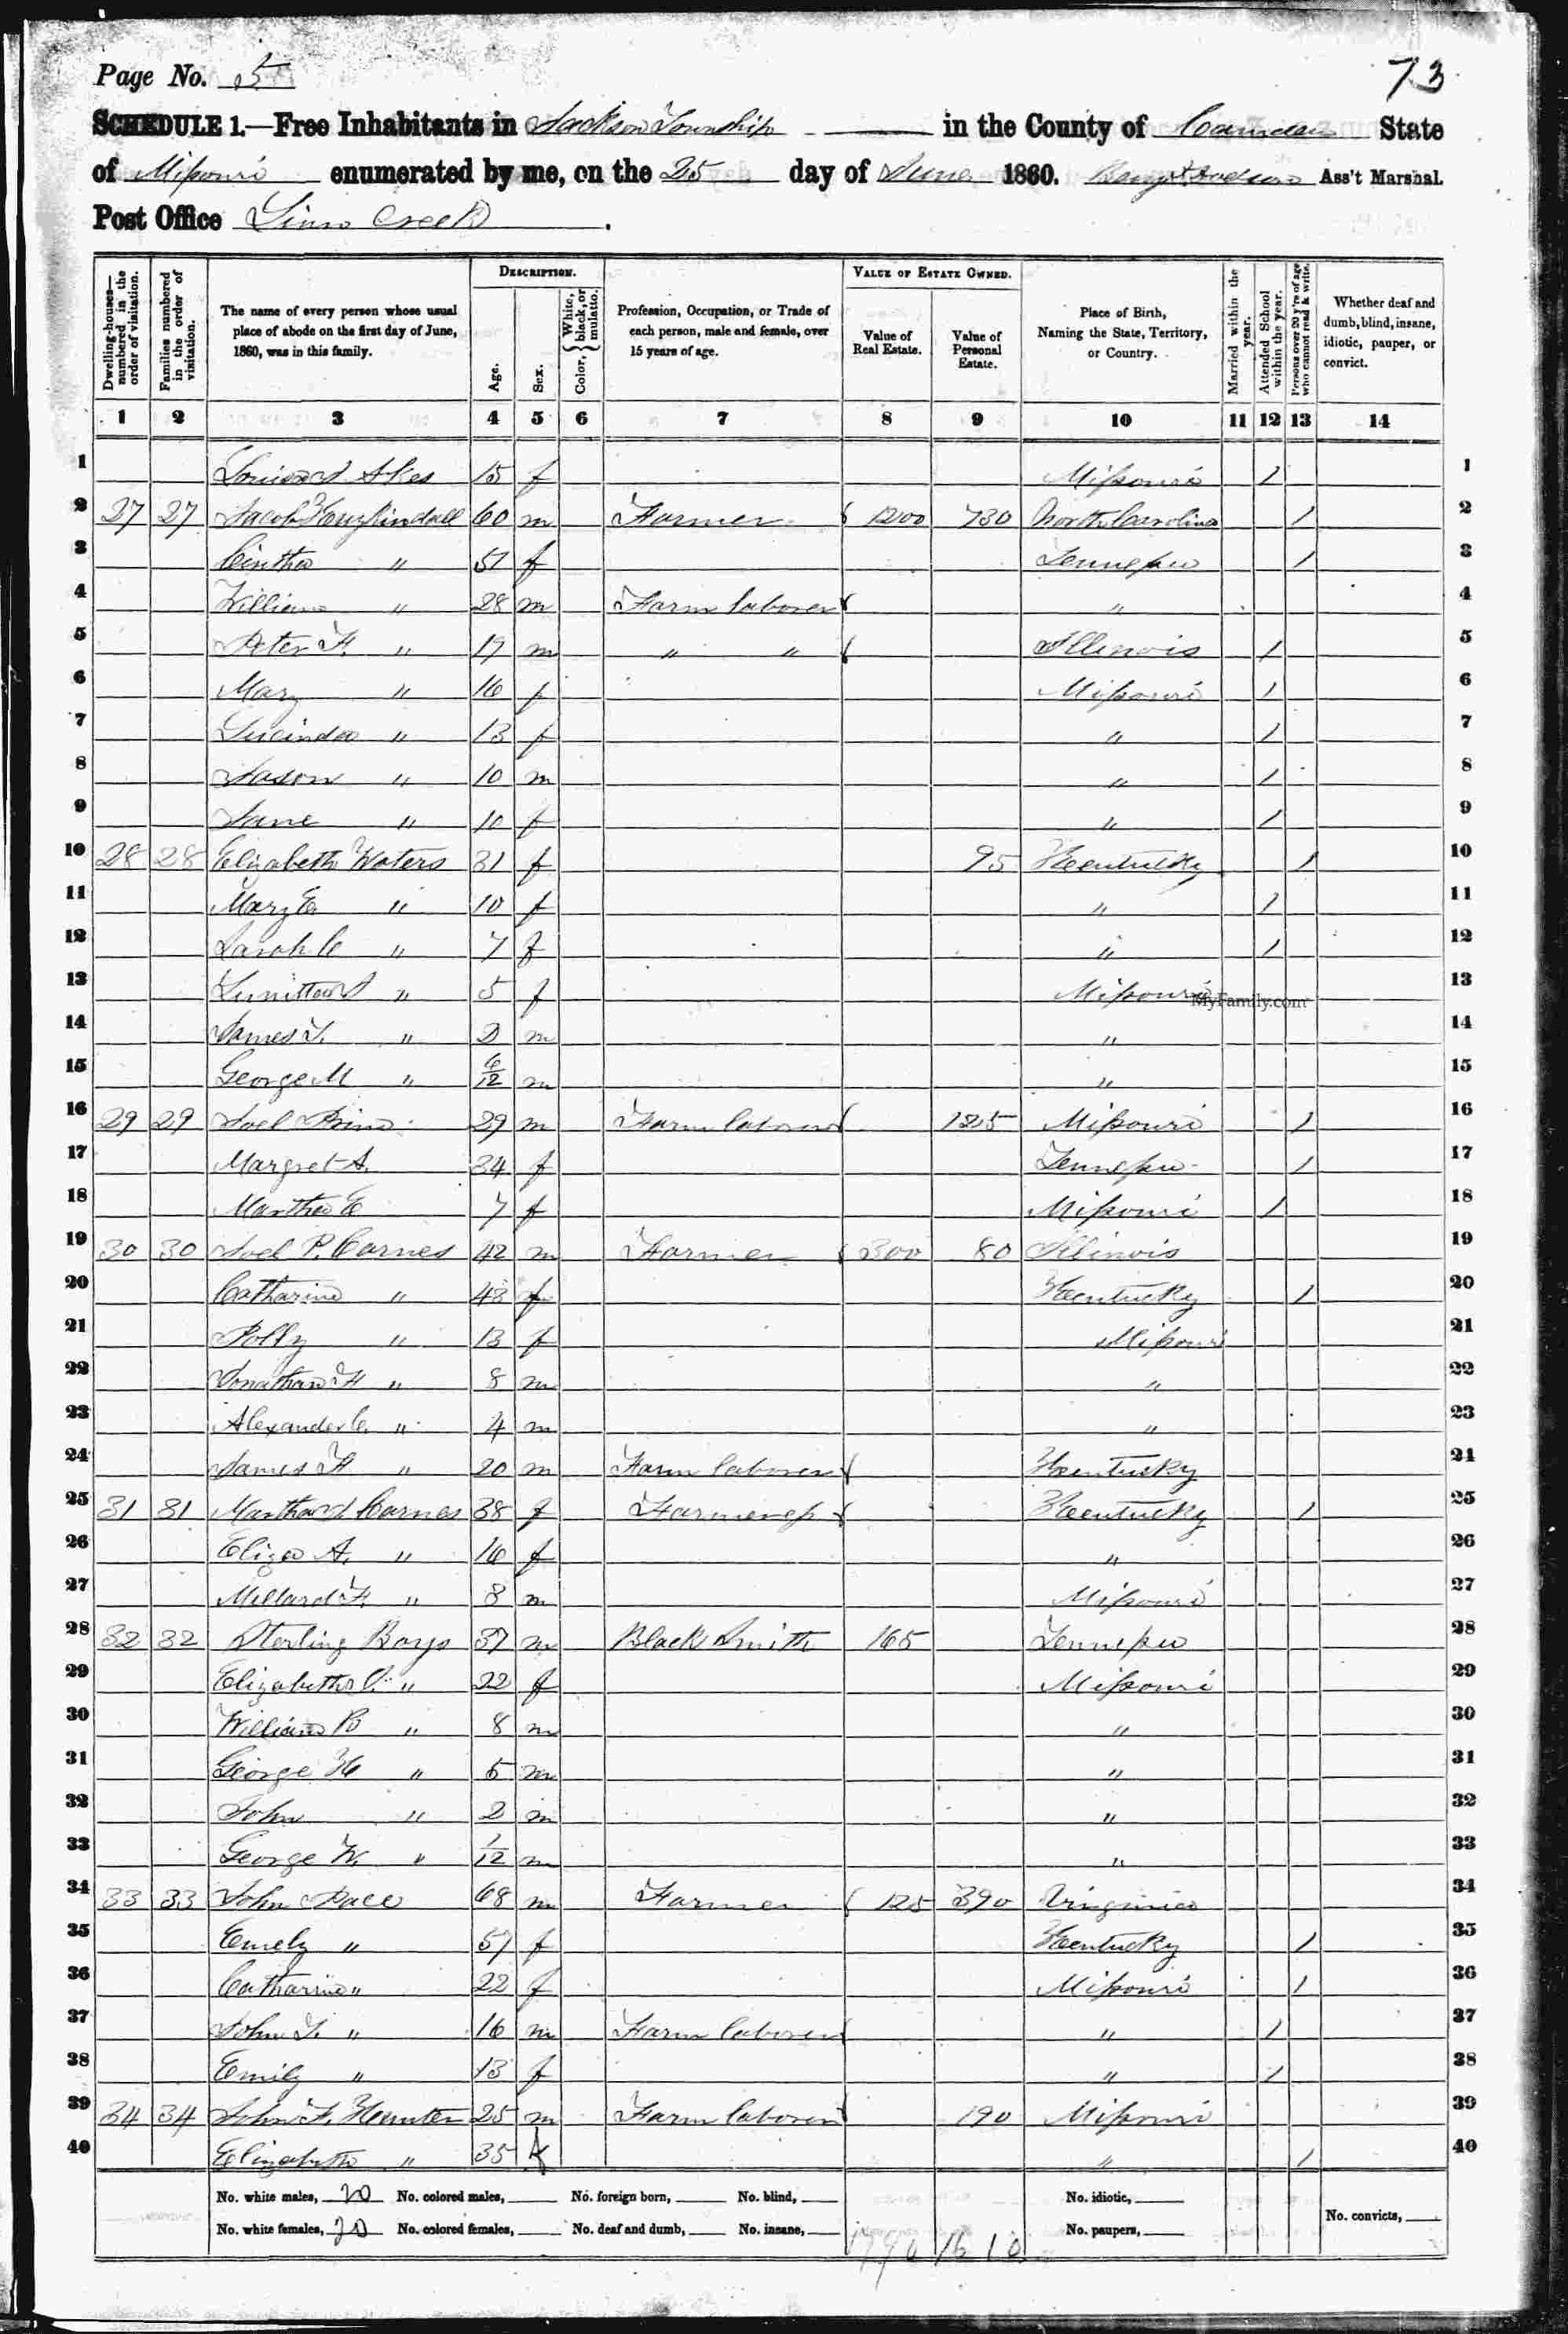 Page No. 5
73
SCHEDULE 1.—Free Inhabitants in Jackson Township in the County of Camden State
of Missouri enumerated by me, on the 25 day of June 1860. Ass't Marshal.
Post Office Linn Creek.
Dwelling-houses—numbered in the order of visitation.
Families numbered in the order of visitation.
The name of every person whose usual place of abode on the first day of June, 1860, was in this family.
DESCRIPTION.
Age.
Sex.
Color, { White, black, or mulatto.
Profession, Occupation, or Trade of each person, male and female, over 15 years of age.
VALUE OF ESTATE OWNED.
Value of Real Estate.
Value of Personal Estate.
Place of Birth, Naming the State, Territory, or Country.
Married within the year.
Attended School within the year.
Persons over 20 y'rs of age who cannot read & write.
Whether deaf and dumb, blind, insane, idiotic, pauper, or convict.
1 2 3 4 5 6 7 8 9 10 11 12 13 14
1 Akes 15 f Missouri 1 1
2 27 27 Jacob 60 m Farmer 1200 730 North Carolina 1 2
3 Cintha " 51 f Tennessee 1 3
4 William " 28 m Farm laborer " 4
5 Peter F. " 19 m " " Illinois 1 5
6 Mary " 16 f Missouri 1 6
7 Lucinda " 13 f " 1 7
8 Jason " 10 m " 1 8
9 Jane " 10 f " 1 9
10 28 28 Elizabeth Waters 31 f 95 Kentucky 1 10
11 Mary E. " 10 f " 1 11
12 Sarah C " 7 f " 1 12
13 " 5 f Missouri 13
MyFamily.com
14 James T. " 2 m " 14
15 George M " 6/12 m " 15
16 29 29 Joel 29 m Farm laborer 125 Missouri 1 16
17 Margret A. 34 f Tennessee 1 17
18 Martha E 7 f Missouri 1 18
19 30 30 Joel P. Carnes 42 m Farmer 300 80 Illinois 19
20 Catharine " 43 f Kentucky 1 20
21 Polly " 13 f Missouri 21
22 Jonathan H " 8 m " 22
23 Alexander C. " 4 m " 23
24 James H " 20 m Farm laborer Kentucky 24
25 31 31 Martha J Carnes 38 f Farmeress Kentucky 1 25
26 Eliza A. " 16 f " 26
27 Millard F. " 8 m Missouri 27
28 32 32 Sterling Bays 37 m Black Smith 165 Tennessee 28
29 Elizabeth " 22 f Missouri 29
30 William B " 8 m " 30
31 George H " 5 m " 31
32 John " 2 m " 32
33 George W. " 1/12 m " 33
34 33 33 John Pace 68 m Farmer 125 390 Virginia 34
35 Emely " 57 f Kentucky 1 35
36 Catharine " 22 f Missouri 1 36
37 John T. " 16 m Farm laborer " 1 37
38 Emily " 13 f " 1 38
39 34 34 John F. Hunter 25 m Farm laborer 190 Missouri 39
40 Elizabeth " 35 f " 1 40
No. white males, 20 No. colored males, No. foreign born, No. blind, No. idiotic,
No. white females, 20 No. colored females, No. deaf and dumb, No. insane, 1790 1610 No. paupers, No. convicts,